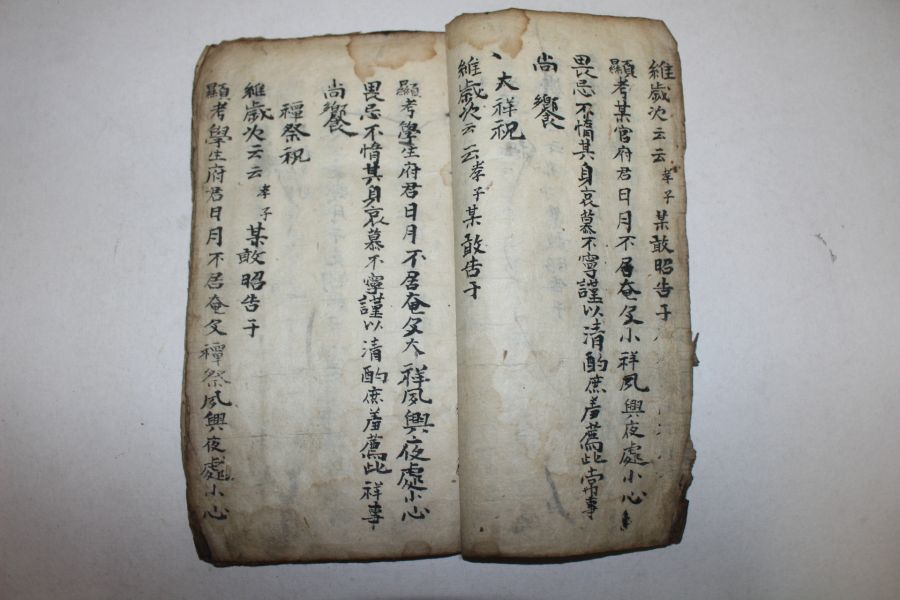 維歲次云云孝子某敢昭告于
顯考某官府君日月不居奄及小祥夙興夜處小心
畏忌不惰其身哀慕不寧謹以清酌庶羞薦此常事
尚饗
大祥祝
維歲次云云孝子某敢告于
顯考學生府君日月不居奄及大祥夙興夜處小心
畏忌不惰其身哀慕不寧謹以清酌庶羞薦此祥事
尚饗
禫祭祝
維歲次云云孝子某敢昭告于
顯考學生府君日月不居奄及禫祭夙興夜處小心